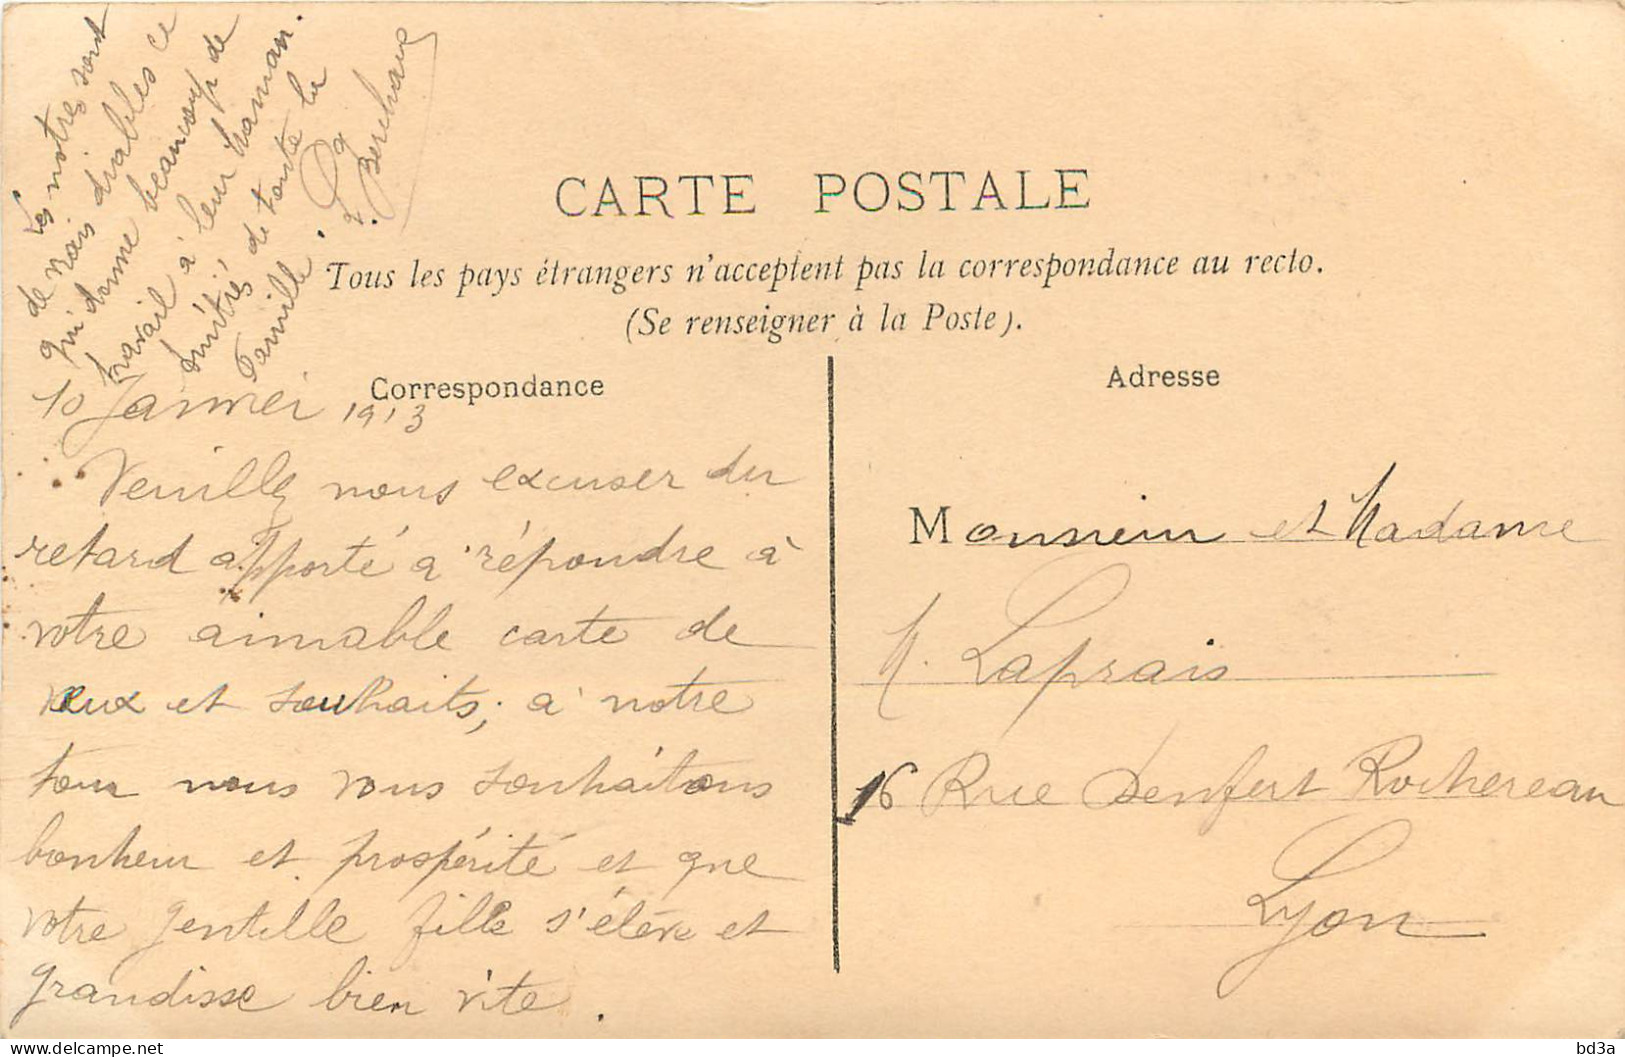 CARTE POSTALE
Tous les pays étrangers n'acceptent pas la correspondance au recto.
(Se renseigner à la Poste).
Correspondance
Adresse
10 Janvier 1913
Veuillez nous excuser du
retard apporté a répondre à
votre aimable carte de
vœux et souhaits, à notre
tour nous vous souhaitons
bonheur et prospérité et que
votre gentille fille s'élève et
grandisse bien vite.
Les notres sont
de vrais diables ce
qui donne beaucoup de
travail à leur maman.
Amitiés de toute la
Famille.
Monsieur et Madame
Laprais
16 Rue Denfert Rochereau
Lyon
bd3a